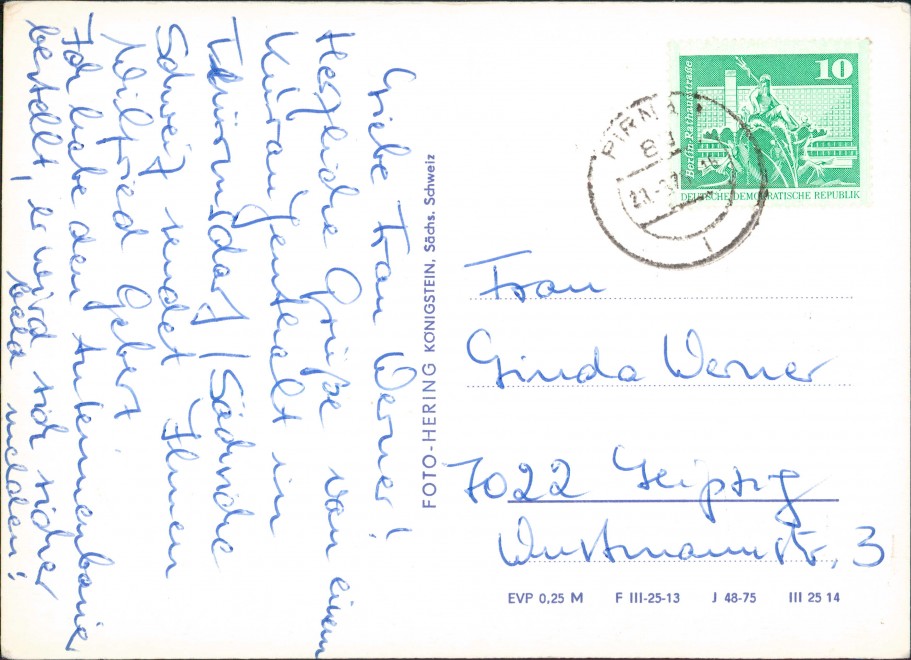 Liebe Frau Werner!
Herzliche Grüße von einem
Kuraufenthalt in
Thürmsdorf / Sächsische
Schweiz sendet Ihnen
Wilfried Gebert
Ich habe den Antennenbauer
bestellt, er wird sich sicher
bald melden!
FOTO-HERING KÖNIGSTEIN, Sächs. Schweiz
10
Berlin·Rathausstraße
DEUTSCHE DEMOKRATISCHE REPUBLIK
PIRNA
Frau
Linda Werner
7022 Leipzig
Wustmannstr. 3
EVP 0,25 M F III-25-13 J 48-75 III 25 14